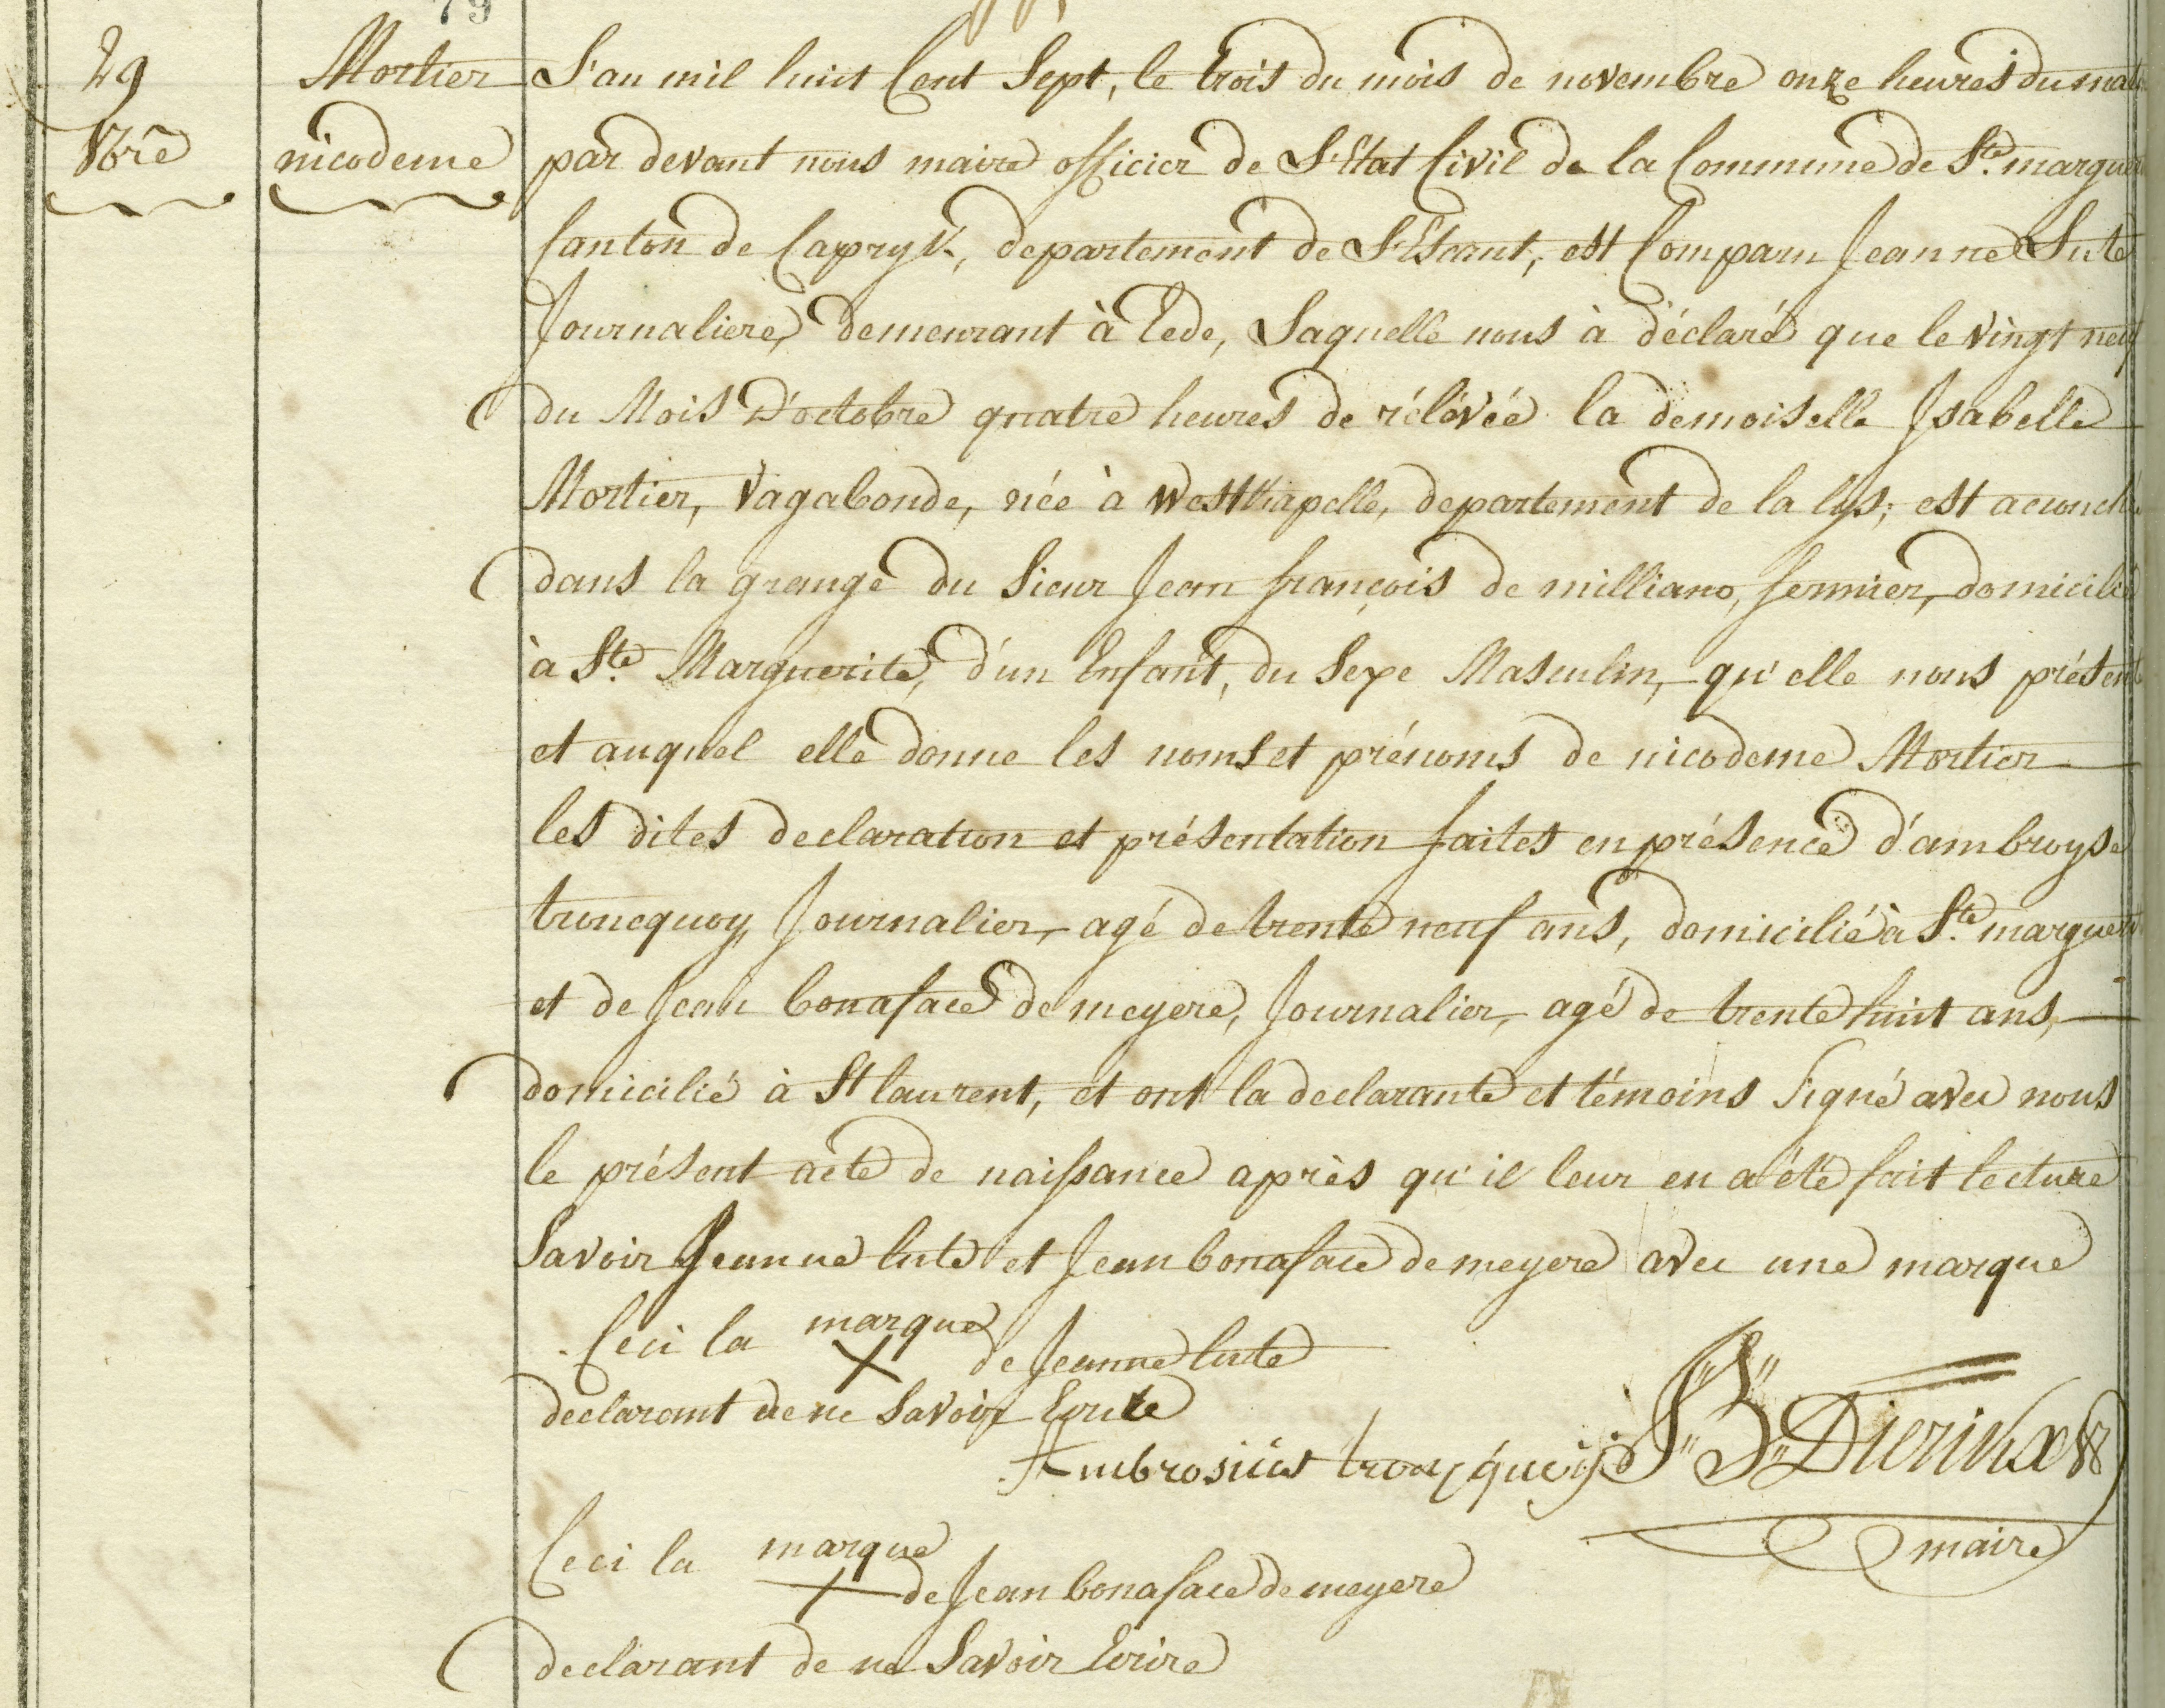 79
29
8bre
Mortier
nicodeme
L'an mil huit Cent Sept, le trois du mois de novembre onze heures du matin
par devant nous maire officier de L'Etat Civil de la Commune de Ste. marguerite
Canton de Capryk, departement de L'Escaut, est Comparu Jeanne Lute
Journaliere, demeurant à Eede, Laquelle nous à déclaré que le vingt neuf
du Mois D'octobre quatre heures de rélévée la demoiselle Isabelle
Mortier, vagabonde, née à WestKapelle, departement de la lys; est acouchée
dans la grange du Sieur Jean françois de milliano, fermier, domicilié
à Ste. Marguerite, d'un Enfant, du Sexe Masculin, qu'elle nous présente
et auquel elle donne les noms et prénoms de nicodeme Mortier
les dites declaration et présentation faites en présence d'ambroyse
troncquoy, Journalier, agé de trente neuf ans, domicilié à Ste. marguerite
et de Jean bonaface de meyere, Journalier, agé de trente huit ans,
domicilié à St laurent, et ont la declarante et témoins signé avec nous
le présent acte de naissance après qu'il leur en a été fait lecture
Savoir Jeanne lute et Jean bonaface de meyere avec une marque
Ceci la marque
X de Jeanne lute
declarant de ne Savoir Ecrire
Ambrosius troncquoy
J" B" Dierinckx
maire
Ceci la marque
X de Jean bonaface de meyere
declarant de ne Savoir Ecrire